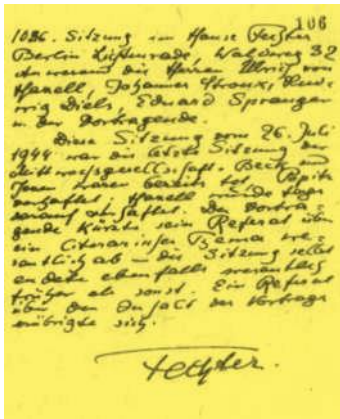 106
1086. Sitzung im Hause Fechter
Berlin Lichtenrade, Waldweg 32
Anwesend die Herren Ulrich von
Hassell, Johannes Stroux, Lud-
wig Diels, Eduard Spranger
u. der Vortragende.
Diese Sitzung vom 26. Juli
1944 war die letzte Sitzung der
Mittwochsgesellschaft. Beck und
Jessen waren bereits tot, Popitz
verhaftet, Hassell wurde tags
darauf verhaftet. Der Vortra-
gende kürzte sein Referat über
ein literarisches Thema we-
sentlich ab — die Sitzung selbst
endete ebenfalls wesentlich
früher als sonst. Ein Referat
über den Inhalt des Vortrags
erübrigte sich.
Fechter.